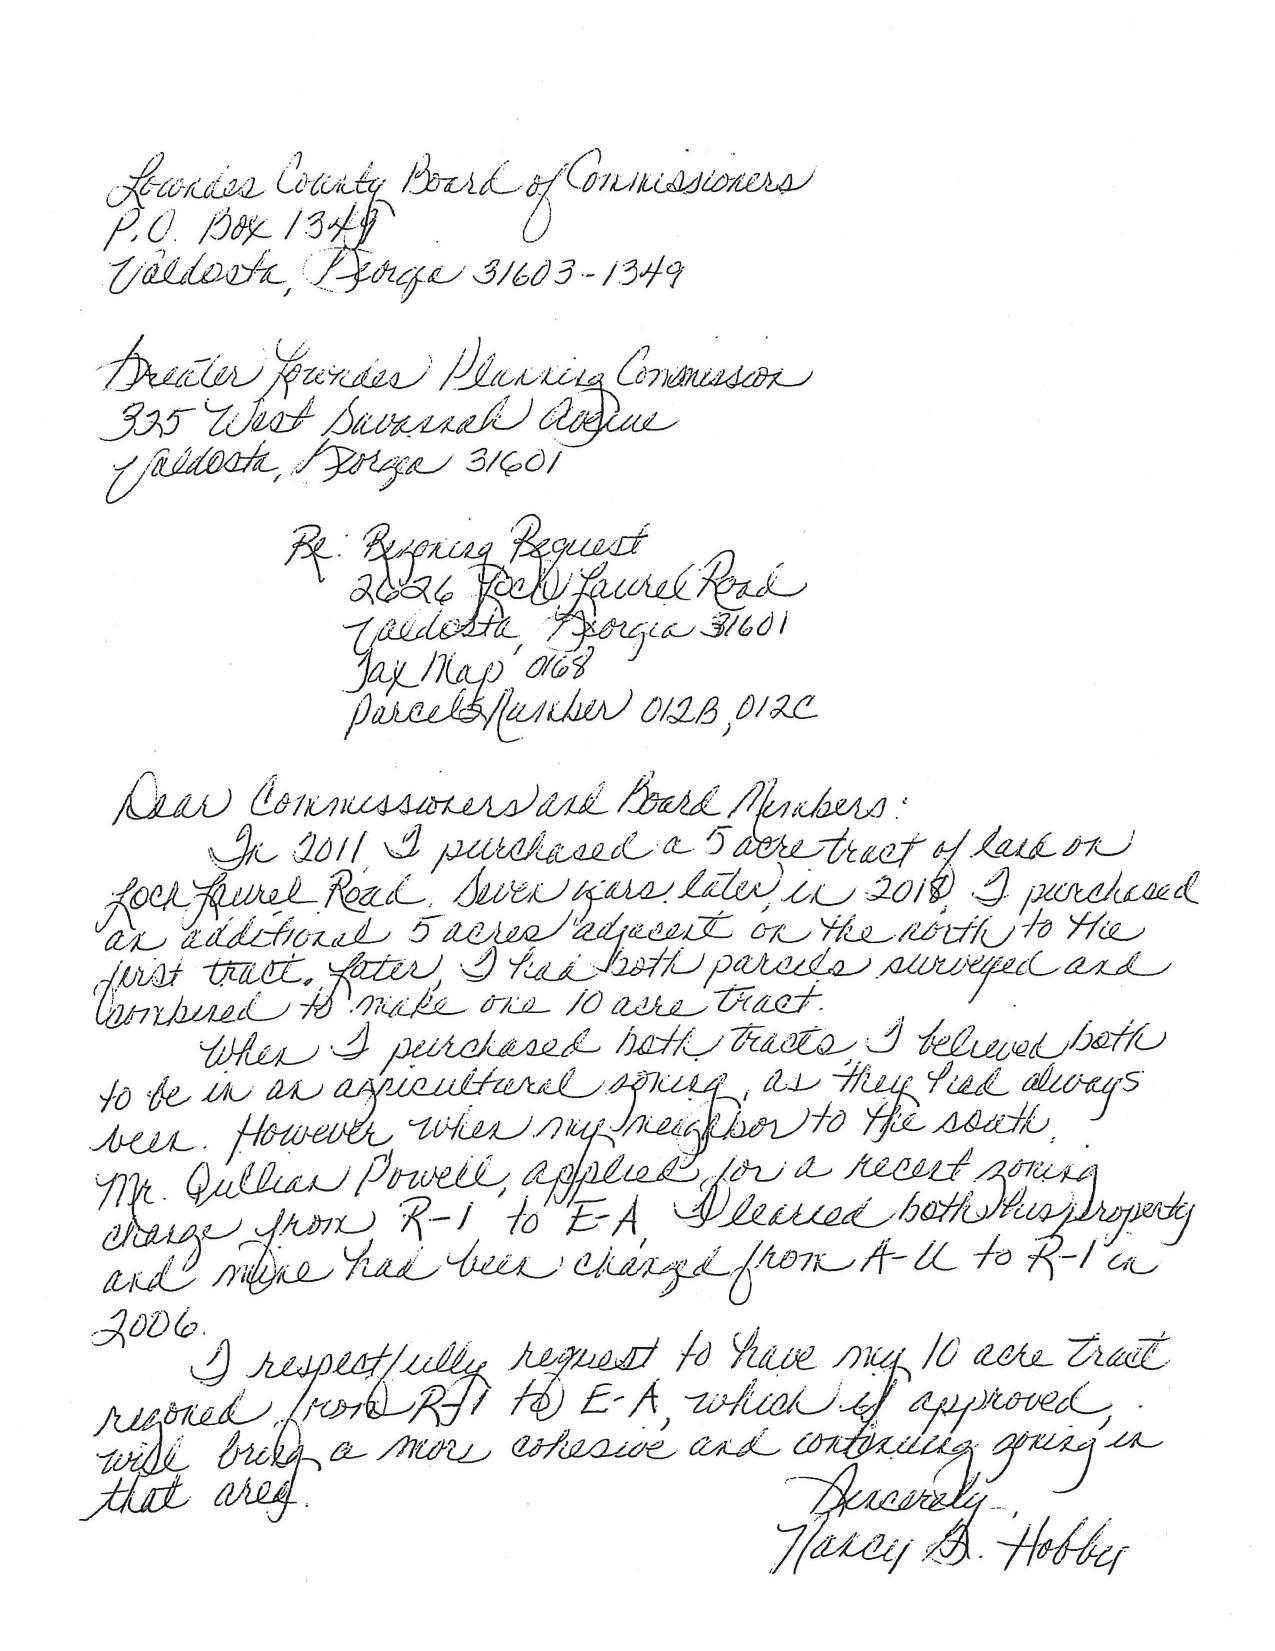 Lowndes County Board of Commissioners
P.O. Box 1349
Valdosta, Georgia 31603-1349
Greater Lowndes Planning Commission
325 West Savannah Avenue
Valdosta, Georgia 31601
Re: Rezoning Request
2626 Loch Laurel Road
Valdosta, Georgia 31601
Tax Map 0168
Parcels Number 012B, 012C
Dear Commissioners and Board Members:
In 2011, I purchased a 5 acre tract of land on
Loch Laurel Road. Seven years later, in 2018, I purchased
an additional 5 acres adjacent on the north to the
first tract. Later, I had both parcels surveyed and
combined to make one 10 acre tract.
When I purchased both tracts, I believed both
to be in an agricultural zoning, as they had always
been. However when my neighbor to the south,
Mr. Quillian Powell, applied for a recent zoning
change from R-1 to E-A, I learned both his property
and mine had been changed from A-U to R-1 in
2006.
I respectfully request to have my 10 acre tract
rezoned from R-1 to E-A, which if approved,
will bring a more cohesive and continuing zoning in
that area.
Sincerely,
Nancy G. Hobby